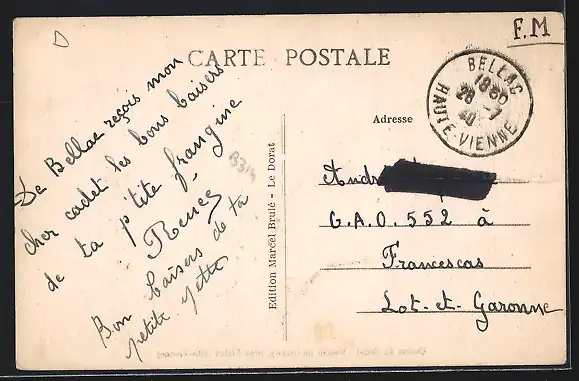 F.M
CARTE POSTALE
BELLAC
18
28 -7
40
HAUTE-VIENNE
De Bellac reçois mon
cher cadet les bons baisers
de ta p'tite frangine
Renée
Bon baisers de ta
petite
B314
Edition Marcel Brulé - Le Dorat
Adresse
G.A.O. 552 à
Francescas
Lot-et-Garonne